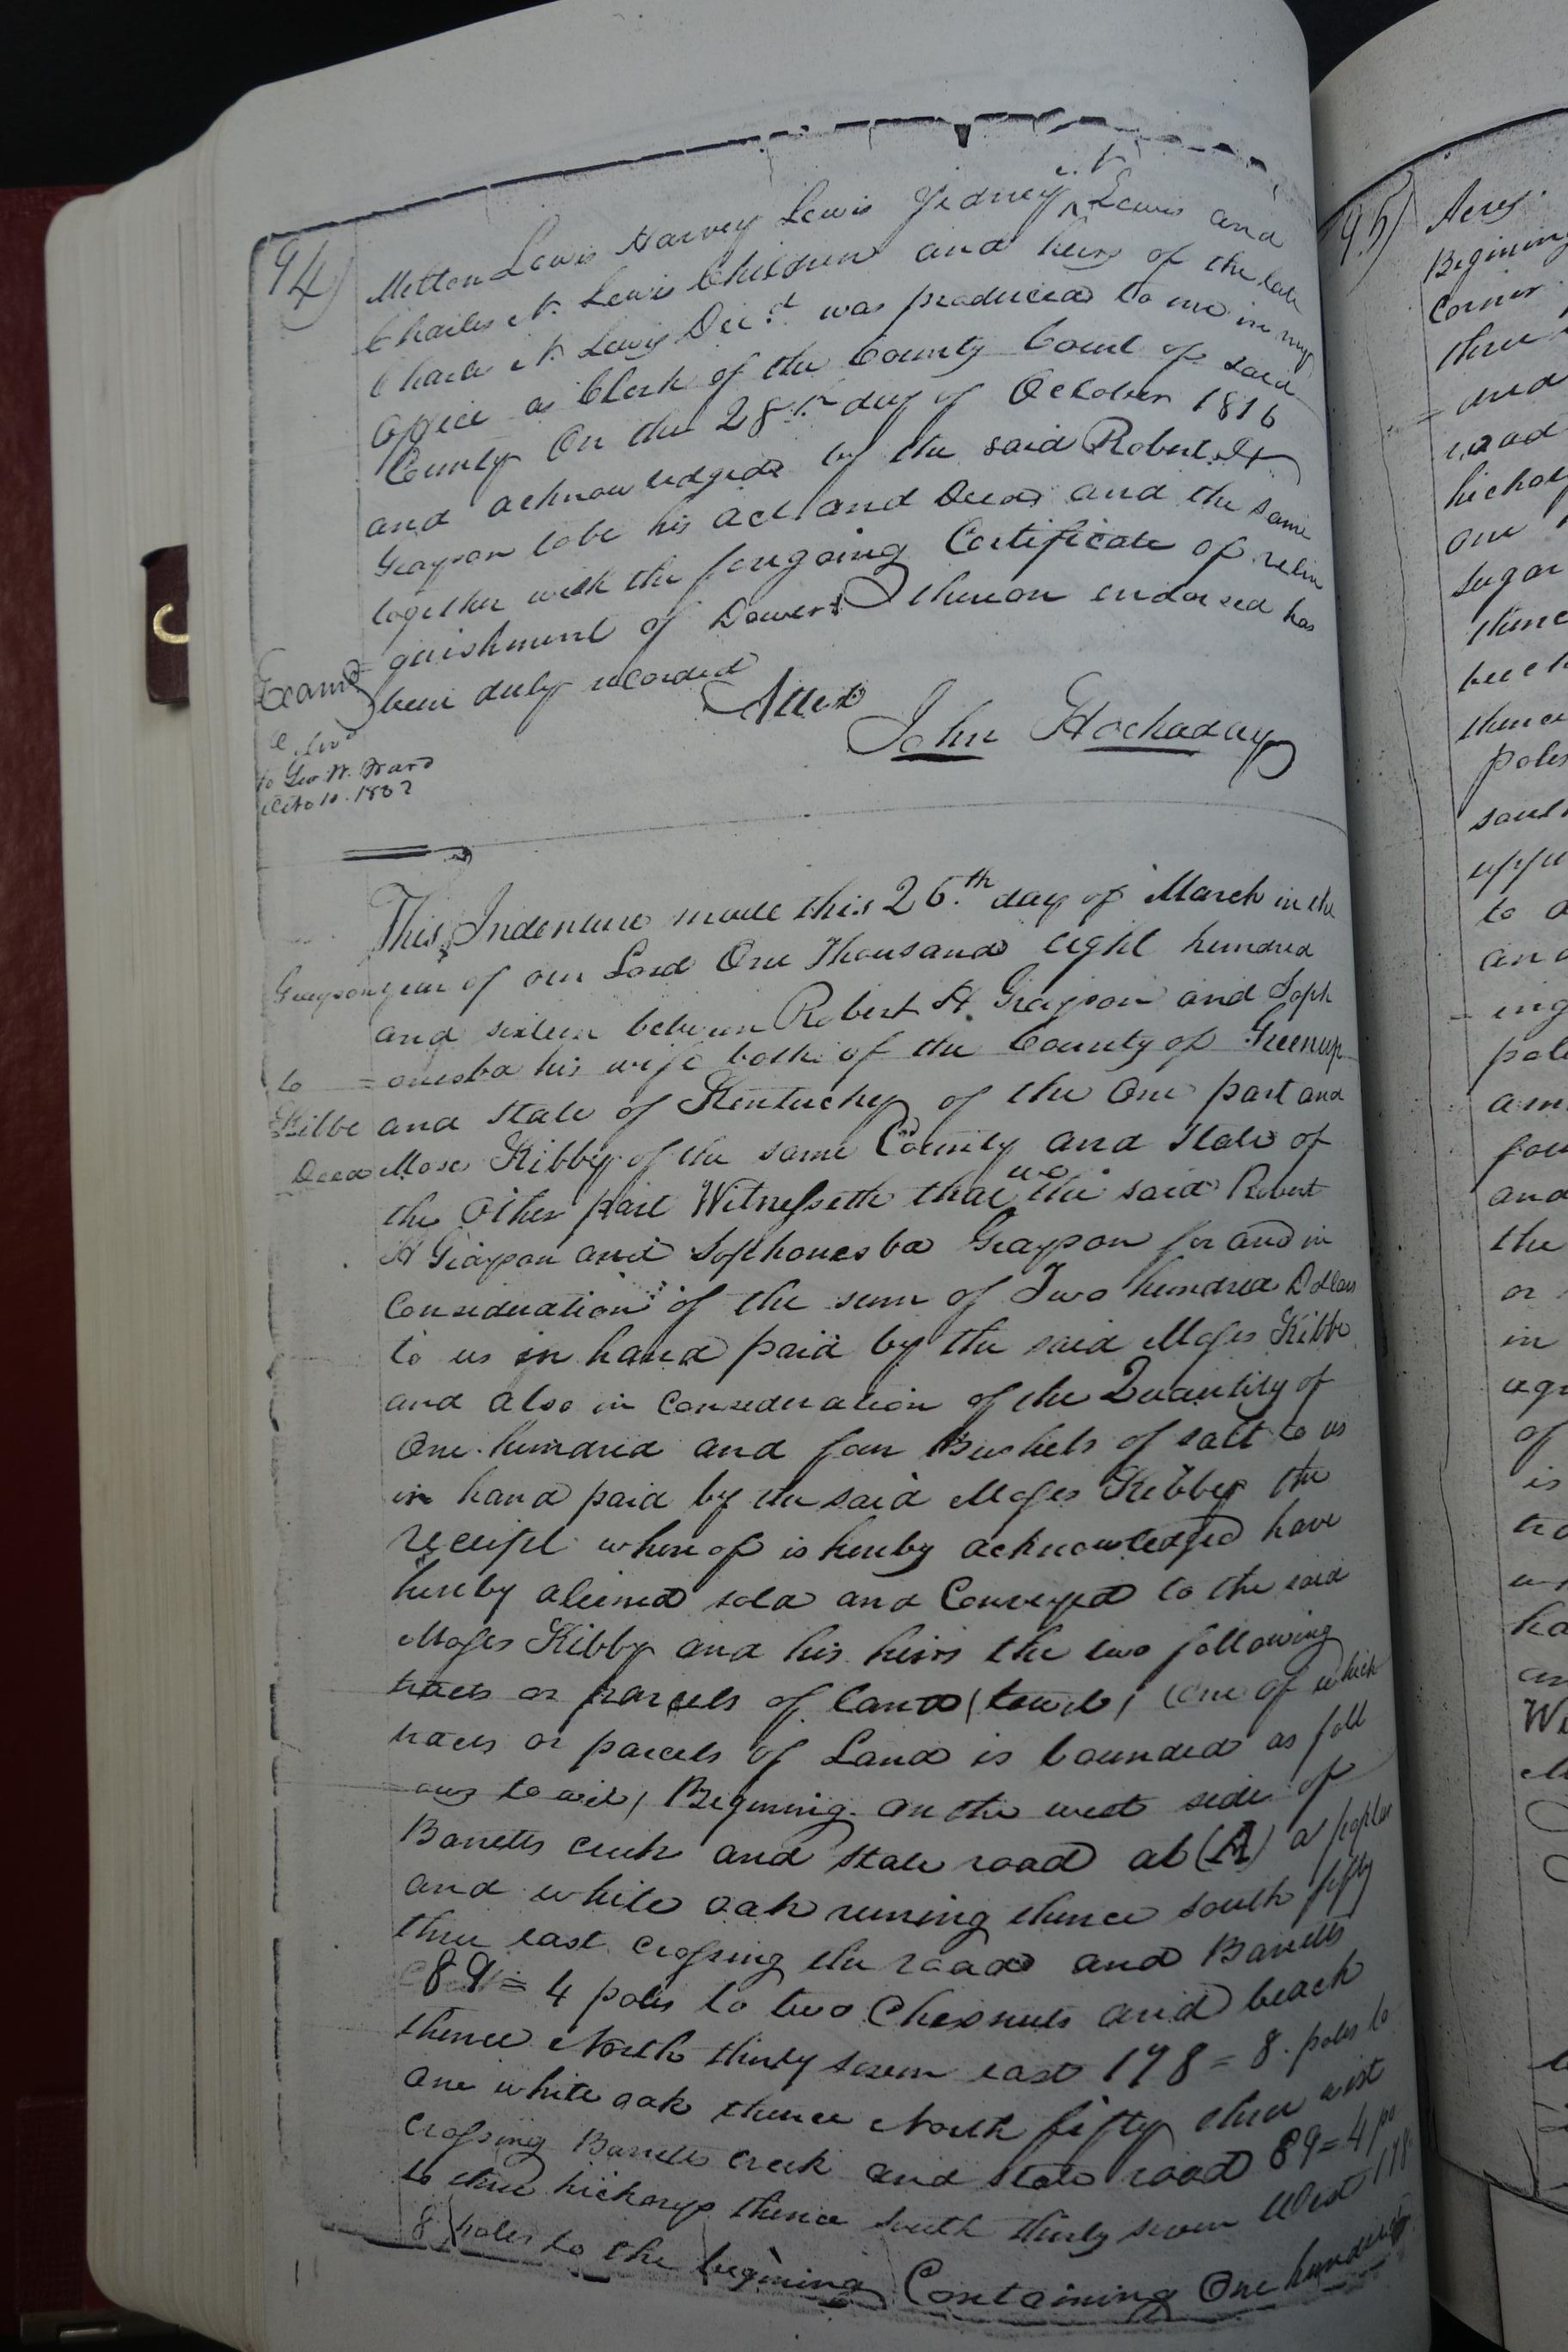 94)
Milton Lewis Harvey Lewis Sidney N. Lewis and
Charles N. Lewis Children and heirs of the late
Charles N. Lewis Decd. was produced to me in my
Office as Clerk of the County Court of said
County On the 28th day of October 1816
and acknowledged by the said Robert H
Grayson to be his act and Deed and the same
together with the foregoing Certificate of relin
=quishment of Dower thereon endorsed has
been duly recorded
Attest
John Hockaday
Examd
to Geo. W. Ward
Octo 10. 1832
This Indenture made this 26th. day of March in the
year of our Lord One Thousand eight hundred
and sixteen between Robert H. Grayson and Soph
=onesba his wife both of the County of Greenup
and state of Kentucky of the One part and
Moses Kibby of the same County and State of
the Other part Witnesseth that we the said Robert
H Grayson and Sophonesba Grayson for and in
Consideration of the sum of Two hundred Dollars
to us in hand paid by the said Moses Kibbe
and also in Consideration of the Quantity of
One hundred and four Bushels of salt to us
in hand paid by the said Moses Kibbey the
receipt whereof is hereby acknowledged have
hereby aliened sold and Conveyed to the said
Moses Kibby and his heirs the two following
tracts or parcels of land (towit) (one of which
tracts or parcels of Land is bounded as foll
ows to wit, Begining on the west side of
Barretts creek and state road at (A) a poplar
and white oak runing thence south fifty
three east crossing the road and Barretts
89=4 poles to two Chesnuts and beach
thence North thirty seven east 198=8. poles to
one white oak thence North fifty three west
crossing Barretts creek and state road 89=4 po
to three hickorys thence south thirty seven West 198
8 poles to the begining Containing One hundred
Grayson
to
Kilbe
Deed
95)
Acres.
Begining
Corner
three
and
road
hickory
one
sugar
thence
beech
thence
poles
south
to a
and
ing
pole
and
the
or
in
agr
of
is